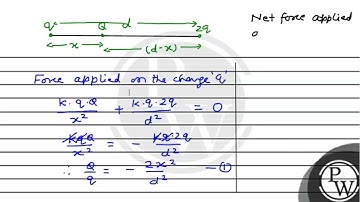 q Q d 2q
x (d-x)
Net force applied
Force applied on the charge 'q'
k.q.Q/x² + k.q.2q/d² = 0
kqQ/x² = - kq.2q/d²
∴ Q/q = - 2x²/d² - ①
PW